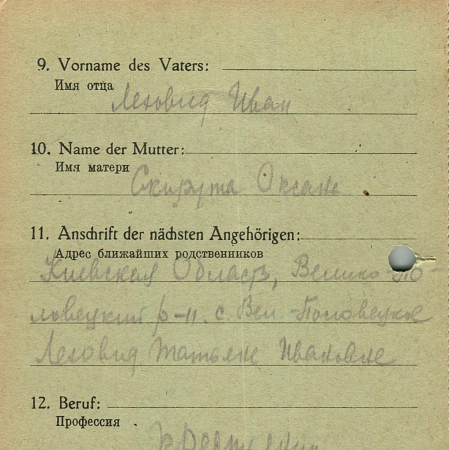 9. Vorname des Vaters:
Имя отца
Леховид Иван
10. Name der Mutter:
Имя матери
Скирута Оксане
11. Anschrift der nächsten Angehörigen:
Адрес ближайших родственников
Киевская Область, Велико-По-
ловецкий р-н. с. Вел-Половецкое
Леховид Татьяне Ивановне
12. Beruf:
Профессия